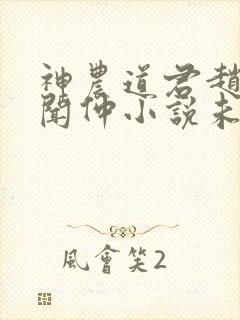 神農道君趙
聞仲小說未
風會笑2